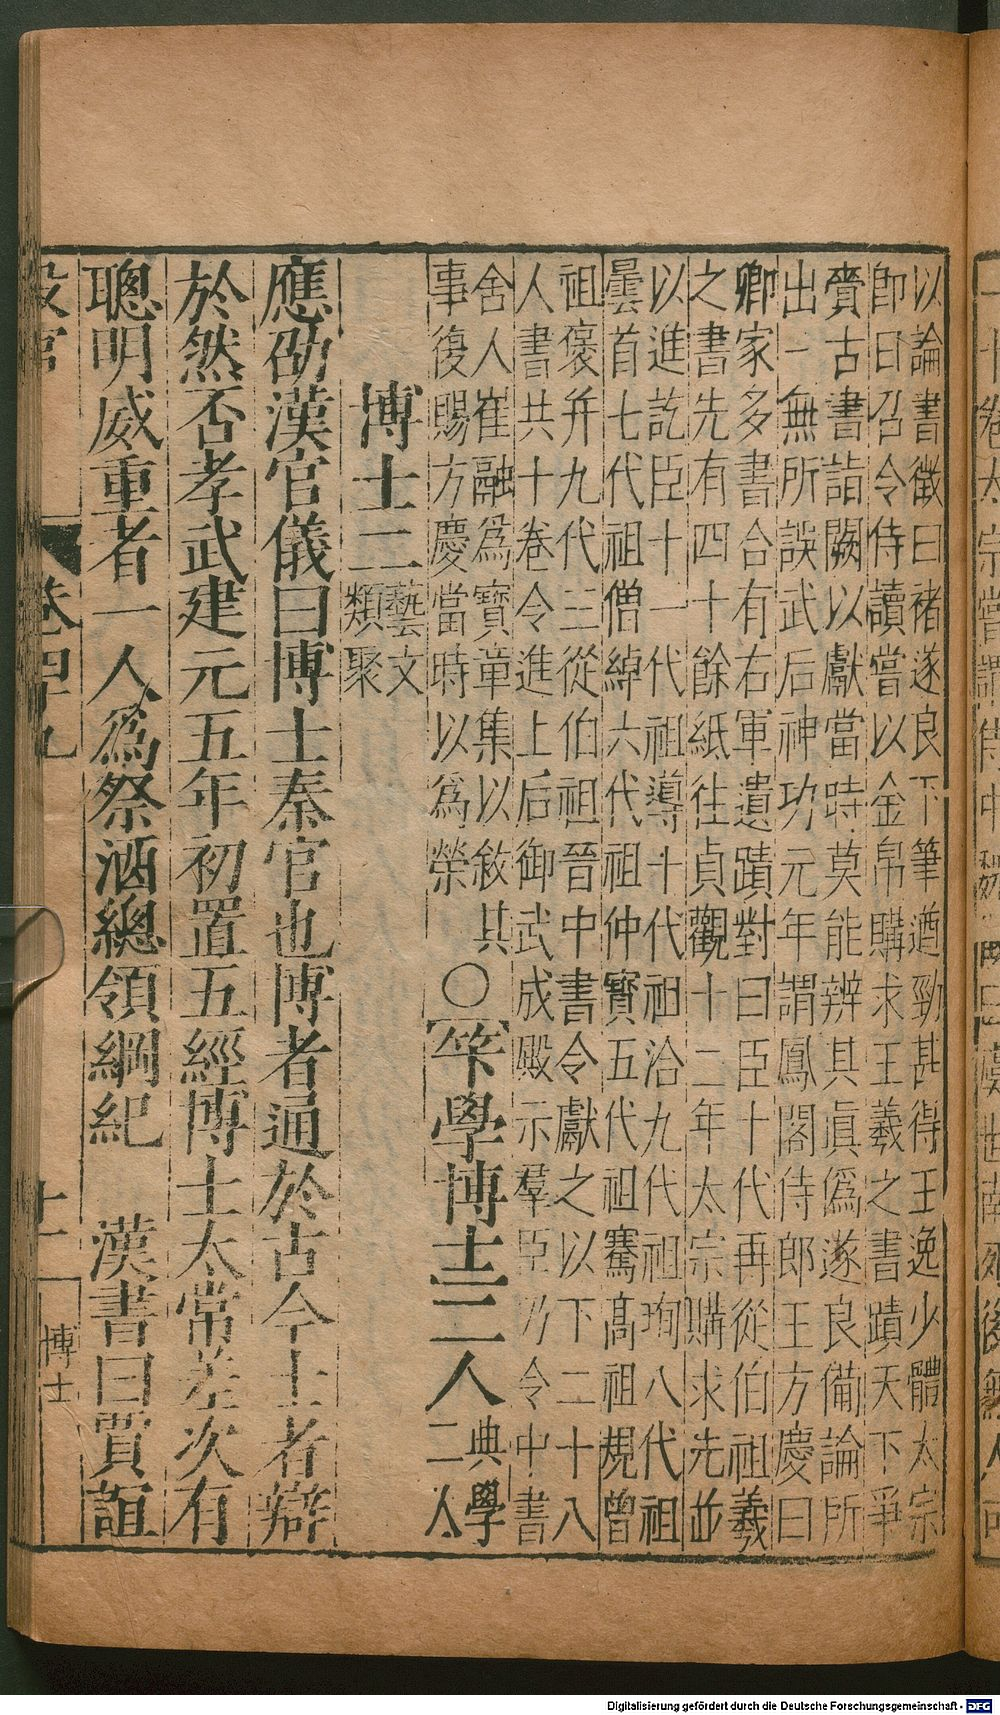 以論書徵曰褚遂良下筆遒勁甚得王逸少體太宗
即日召令侍讀嘗以金帛購求王羲之書蹟天下爭
賫古書詣闕以獻當時莫能辨其眞僞遂良備論所
出一無所誤武后神功元年謂鳳閣侍郎王方慶曰
卿家多書合有右軍遺蹟對曰臣十代再從伯祖羲
之書先有四十餘紙往貞觀十二年太宗購求先並
以進訖臣十一代祖導十代祖洽九代祖珣八代祖
曇首七代祖僧綽六代祖仲寳五代祖騫髙祖規曾
祖褒并九代三從伯祖晉中書令獻之以下二十八
人書共十卷令進上后御武成殿示羣臣乃令中書
舍人崔融爲寳章集以敘其
事復賜方慶當時以爲榮
○筭學博士二人
典學
二人
博士二
藝文
類聚
應劭漢官儀曰博士秦官也博者通於古今士者辯
於然否孝武建元五年初置五經博士太常差次有
聰明威重者一人爲祭酒總領綱紀　漢書曰賈誼
設官
卷四十九
十一
博士
Digitalisierung gefördert durch die Deutsche Forschungsgemeinschaft - DFG